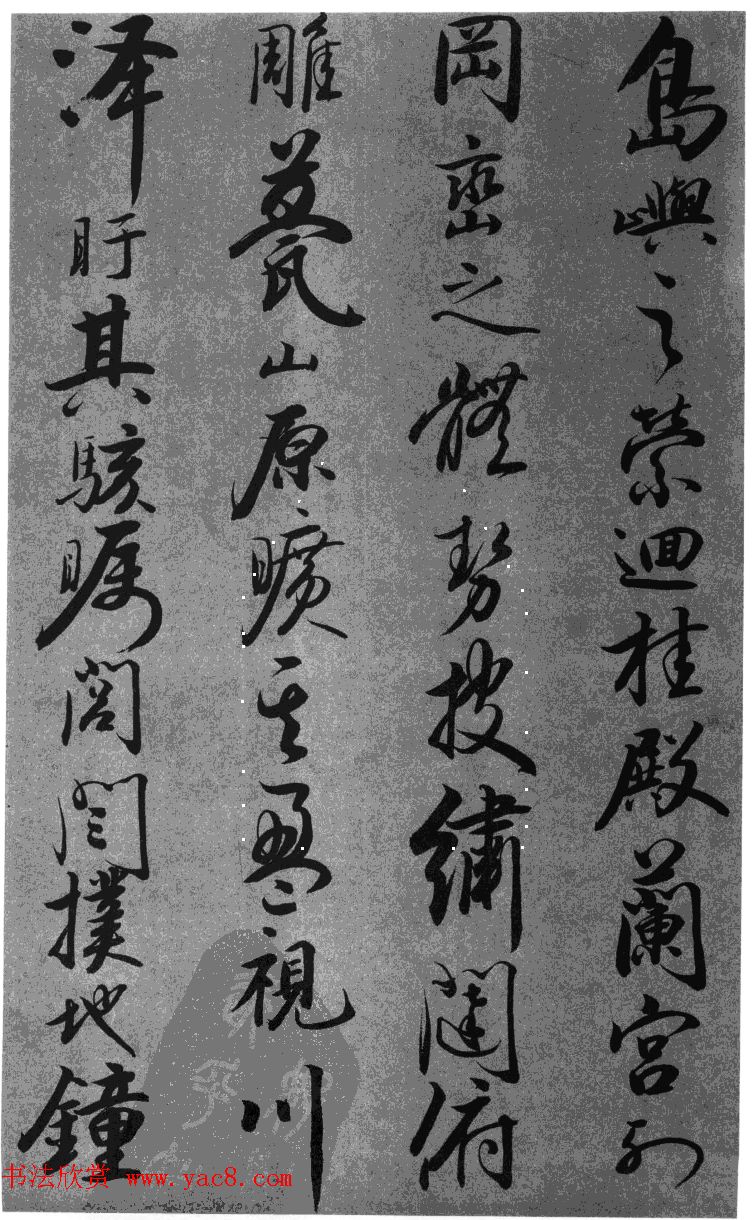 島嶼之縈迴桂殿蘭宮列
岡巒之體勢披繡闥俯
雕甍山原曠其盈視川
澤盱其駭矚閭閻撲地鐘
书法欣赏 www.yac8.com